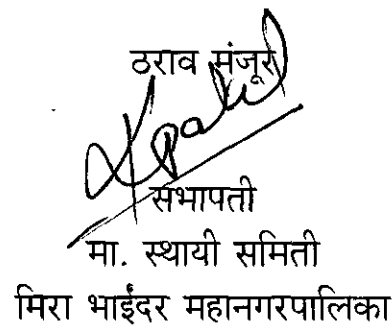 ठराव मंजूर
सभापती
मा. स्थायी समिती
मिरा भाईंदर महानगरपालिका